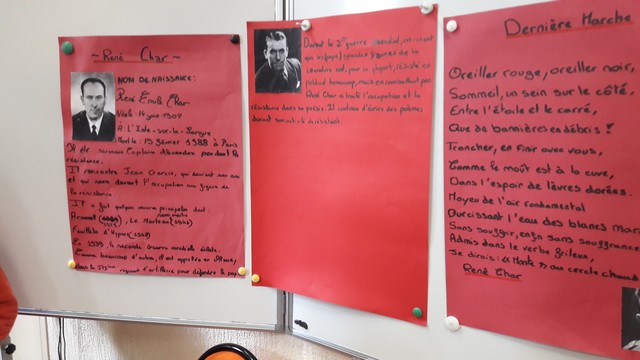 ~ René Char ~
NOM DE NAISSANCE :
René Émile Char
Née le : 14 juin 1907
À : L'Isle-sur-la-Sorgue
Mort le : 19 février 1988 à Paris
Il se surnomme Capitaine Alexandre pendant la
résistance.
Il rencontre Jean
et qui sera durant l'occupation une figure de
la résistance
IT a fait quelques œuvres principales dont :
Arsenal (1929), Le Marteau sans maître (1934)
Feuillets d'Hypnos (1946)
En 1939, la seconde guerre mondiale éclate.
Comme beaucoup d'autres, il est appelé en Alsace,
dans le régiment d'artillerie pour défendre le pays
Durant la 2nd guerre mondial,
grandes figures de la
pour la plupart, résiste en
publiant beaucoup, mais
René Char a traité l'occupation et la
résistance dans sa poésie. Il continue d'écrire des poèmes
durant son activité de résistant.
Dernière Marche
Oreiller rouge, oreiller noir,
Sommeil, un sein sur le côté,
Entre l'étoile et le carré,
Que de bannières en débris !
Trancher, en finir avec vous,
Comme le moût est à la cuve,
Dans l'espoir de lèvres dorées.
Moyeu de l'air fondamental
Durcissant l'eau des blancs mar
Sans souffrir, enfin sans souffrance
Admis dans le verbe frileux,
Je dirai : « Monte » au cercle chaud
René Char